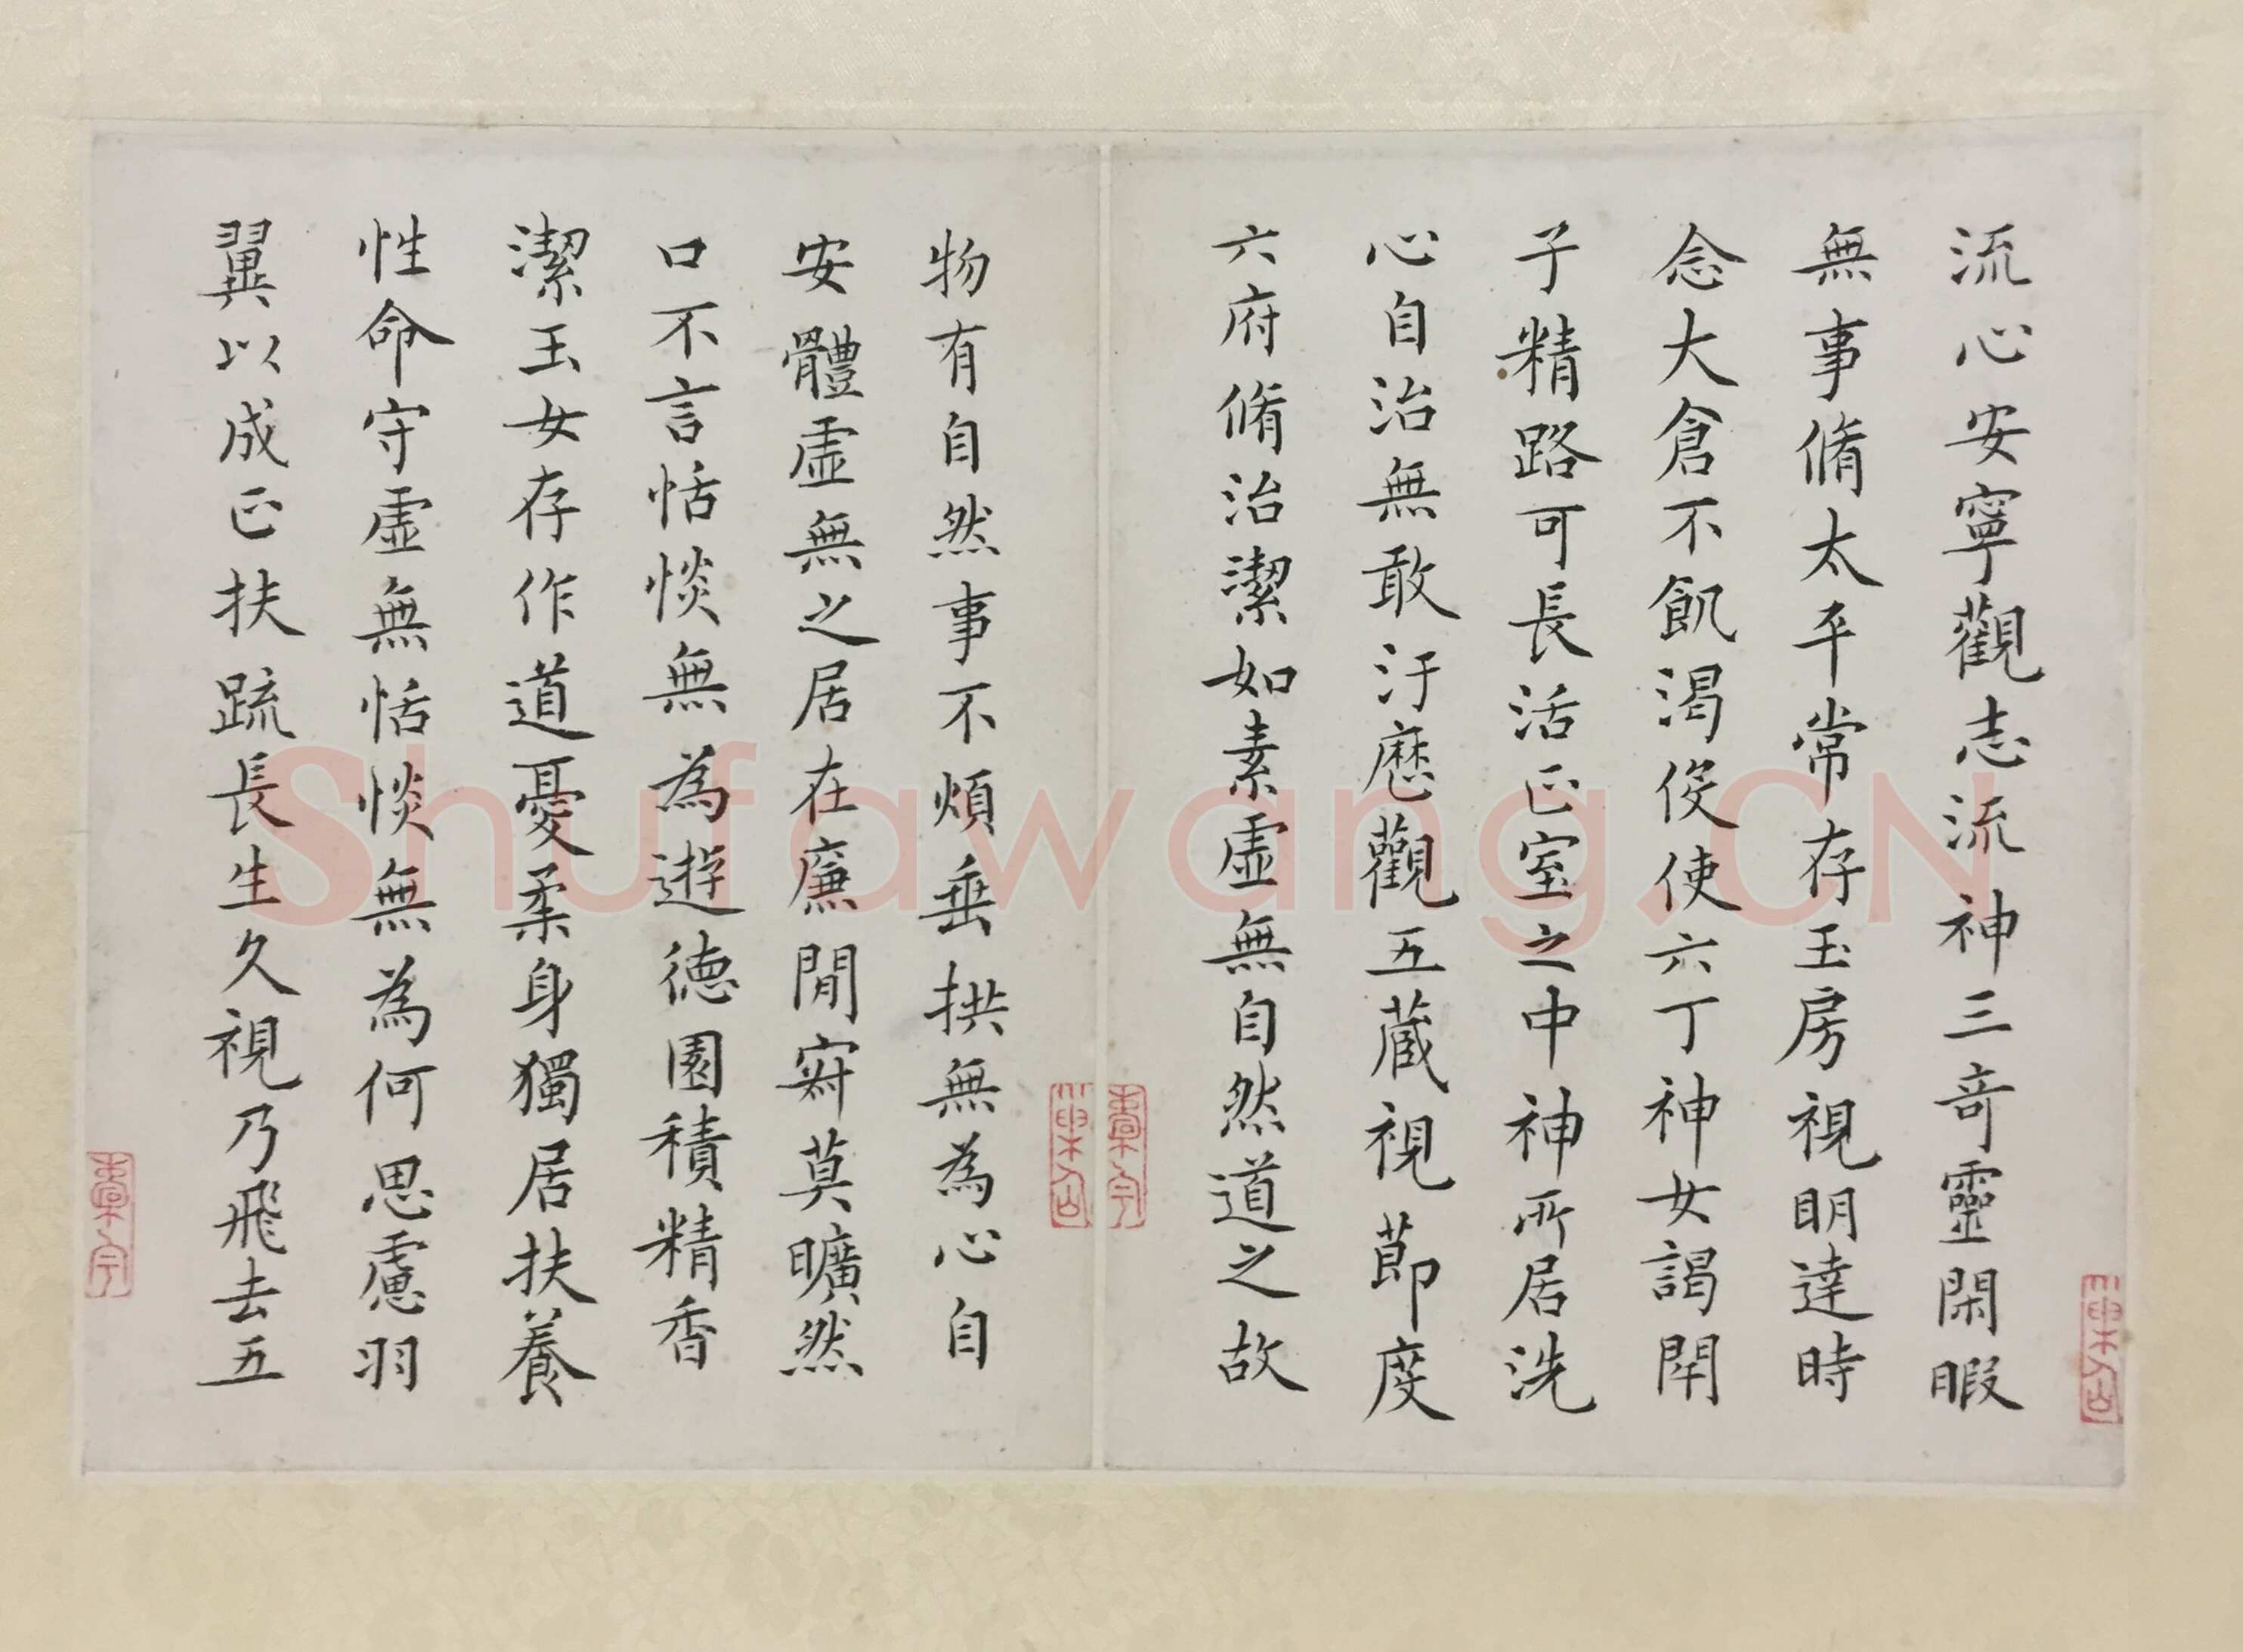 流心安寧觀志流神三奇靈閑暇
無事脩太平常存玉房視明達時
念大倉不飢渴役使六丁神女謁閇
子精路可長活正室之中神所居洗
心自治無敢汙歷觀五藏視節度
六府脩治潔如素虛無自然道之故
物有自然事不煩垂拱無為心自
安體虛無之居在廉閒寂莫曠然
口不言恬惔無為遊德園積精香
潔玉女存作道憂柔身獨居扶養
性命守虛無恬惔無為何思慮羽
翼以成正扶疏長生久視乃飛去五
Shufawang.CN